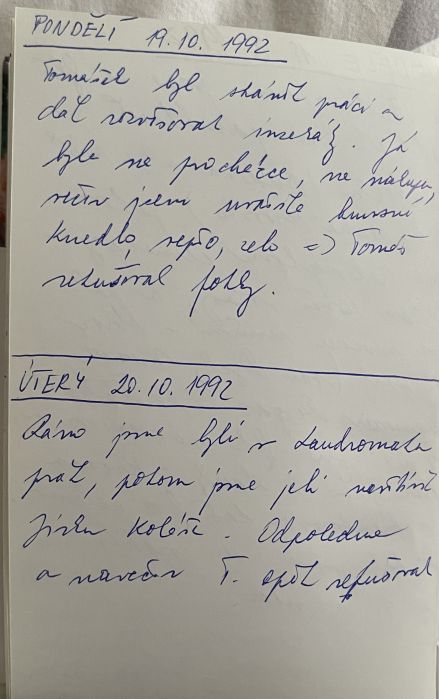 PONDĚLÍ 19.10.1992
Tomášek byl shánět práci a
dal rozvěšovat inzeráty. Já
byla na procházce, na nákupu,
večer jsem uvařila
knedlo, vepřo, zelo => Tomáš
.
ÚTERÝ 20.10.1992
Ráno jsme byli v Laudromatu
prát, potom jsme jeli navštívit
Jirku Koláře. Odpoledne
a navečer T. opět